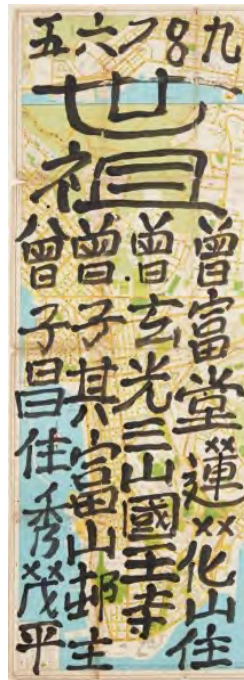 五六7 8九
世
祖
曾富堂蓮××花山住
曾玄光三山國王寺
曾子其富山邨主
曾子昌住秀××茂平